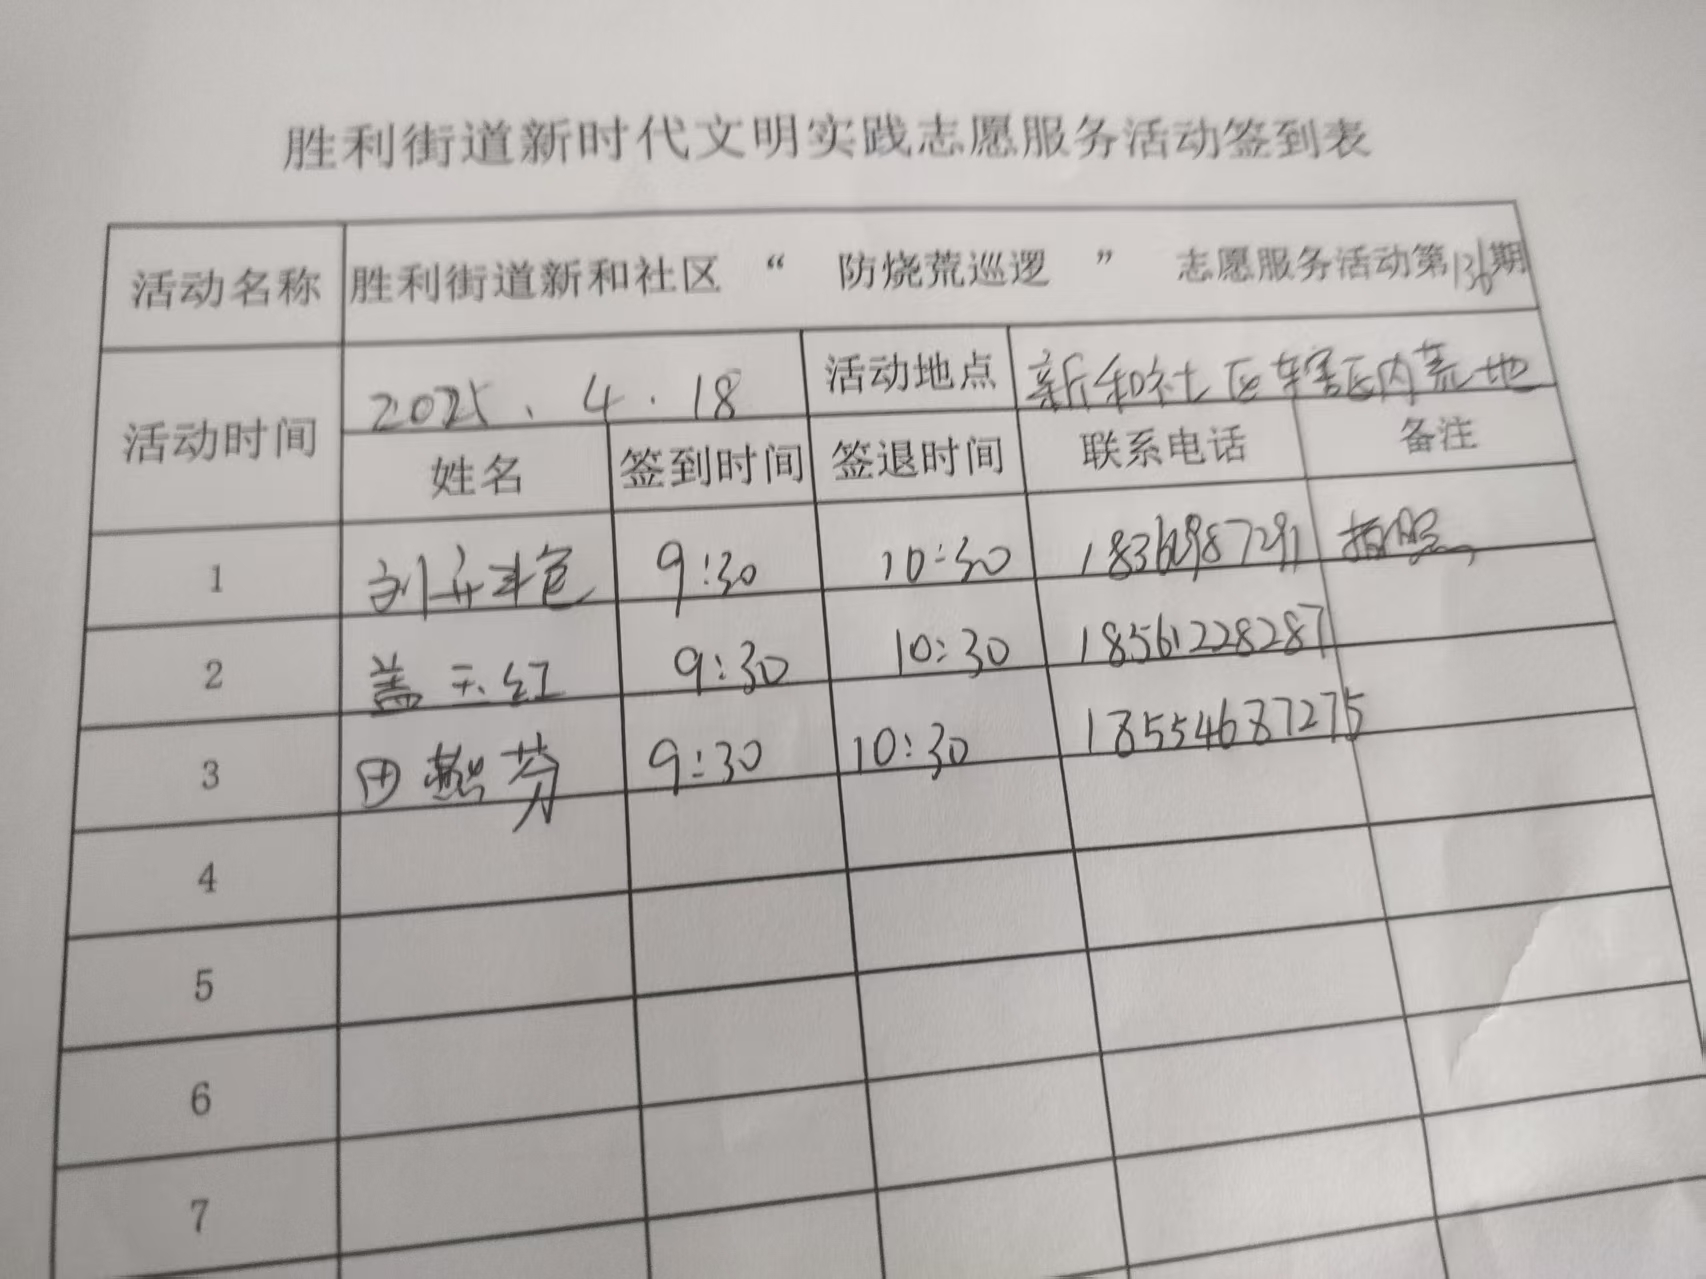 胜利街道新时代文明实践志愿服务活动签到表
活动名称 胜利街道新和社区 “ 防烧荒巡逻 ” 志愿服务活动第136期
活动时间 2025.4.18 活动地点 新和社区辖区内荒地
姓名 签到时间 签退时间 联系电话 备注
1 刘 9:30 10:30 18366987291 拍照
2 盖玉红 9:30 10:30 18561228287
3 田燕芬 9:30 10:30 18554687275
4
5
6
7